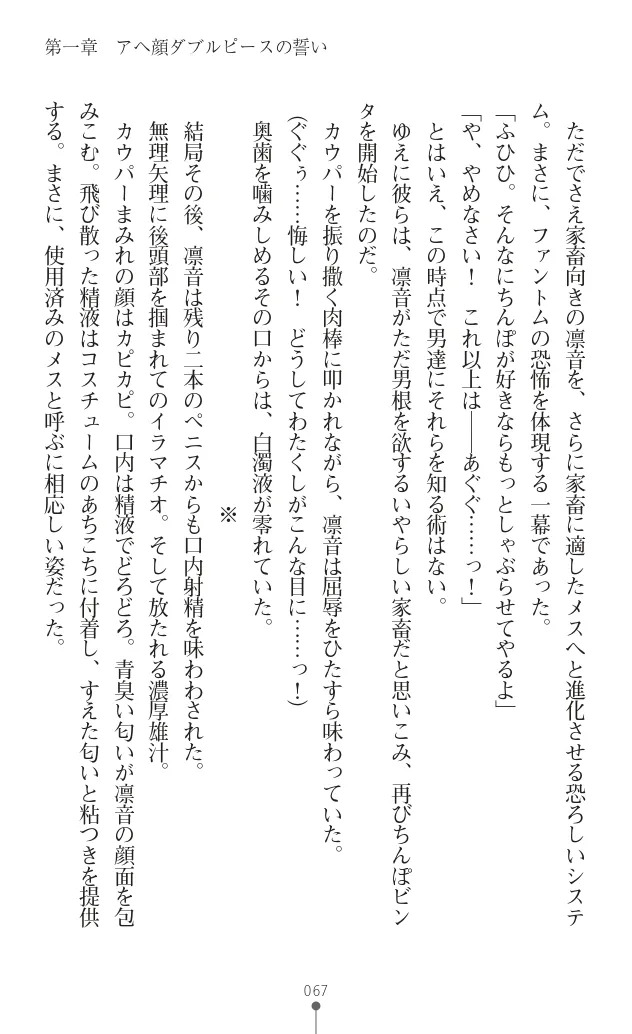 第一章　アヘ顔ダブルピースの誓い
　ただでさえ家畜向きの凛音を、さらに家畜に適したメスへと進化させる恐ろしいシステ
ム。まさに、ファントムの恐怖を体現する一幕であった。
「ふひひ。そんなにちんぽが好きならもっとしゃぶらせてやるよ」
「や、やめなさい！　これ以上は――あぐぐ……っ！」
　とはいえ、この時点で男達にそれらを知る術はない。
　ゆえに彼らは、凛音がただ男根を欲するいやらしい家畜だと思いこみ、再びちんぽビン
タを開始したのだ。
　カウパーを振り撒く肉棒に叩かれながら、凛音は屈辱をひたすら味わっていた。
（ぐぐぅ……悔しい！　どうしてわたくしがこんな目に……っ！）
　奥歯を噛みしめるその口からは、白濁液が零れていた。
※
　結局その後、凛音は残り二本のペニスからも口内射精を味わわされた。
　無理矢理に後頭部を掴まれてのイラマチオ。そして放たれる濃厚雄汁。
　カウパーまみれの顔はカピカピ。口内は精液でどろどろ。青臭い匂いが凛音の顔面を包
みこむ。飛び散った精液はコスチュームのあちこちに付着し、すえた匂いと粘つきを提供
する。まさに、使用済みのメスと呼ぶに相応しい姿だった。
067